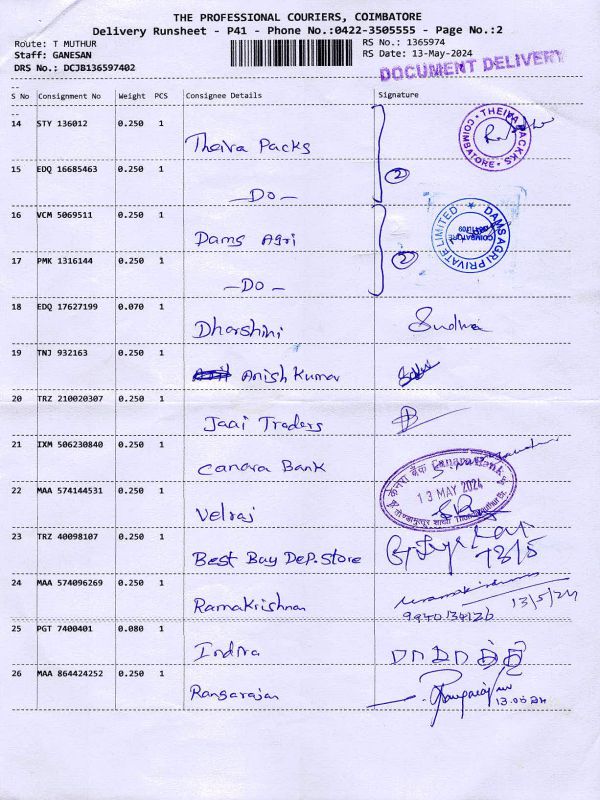 THE PROFESSIONAL COURIERS, COIMBATORE
Delivery Runsheet - P41 - Phone No.:0422-3505555 - Page No.:2
Route: T MUTHUR
Staff: GANESAN
DRS No.: DCJB136597402
RS No.: 1365974
RS Date: 13-May-2024
DOCUMENT DELIVERY
S No Consignment No Weight PCS Consignee Details Signature
14 STY 136012 0.250 1 Thaiva Packs
THEIVA PACKS * COIMBATORE *
15 EDQ 16685463 0.250 1 -Do- 2
16 VCM 5069511 0.250 1 Dams Agri
DAMS AGRI PRIVATE LIMITED * COIMBATORE
17 PMK 1316144 0.250 1 -Do- 2
18 EDQ 17627199 0.070 1 Dharshini Sudha
19 TNJ 932163 0.250 1 Anish Kumar
20 TRZ 210020307 0.250 1 Jaai Traders
21 IXM 506230840 0.250 1 Canara Bank
केनरा बैंक Canara Bank
13 MAY 2024
22 MAA 574144531 0.250 1 Velraj
23 TRZ 40098107 0.250 1 Best Buy Dep. Store 13/5
24 MAA 574096269 0.250 1 Ramakrishnan Ramakrishnan 13/5/24
9940134126
25 PGT 7400401 0.080 1 Indira
26 MAA 864424252 0.250 1 Rangarajan Rangarajan
13.05.24